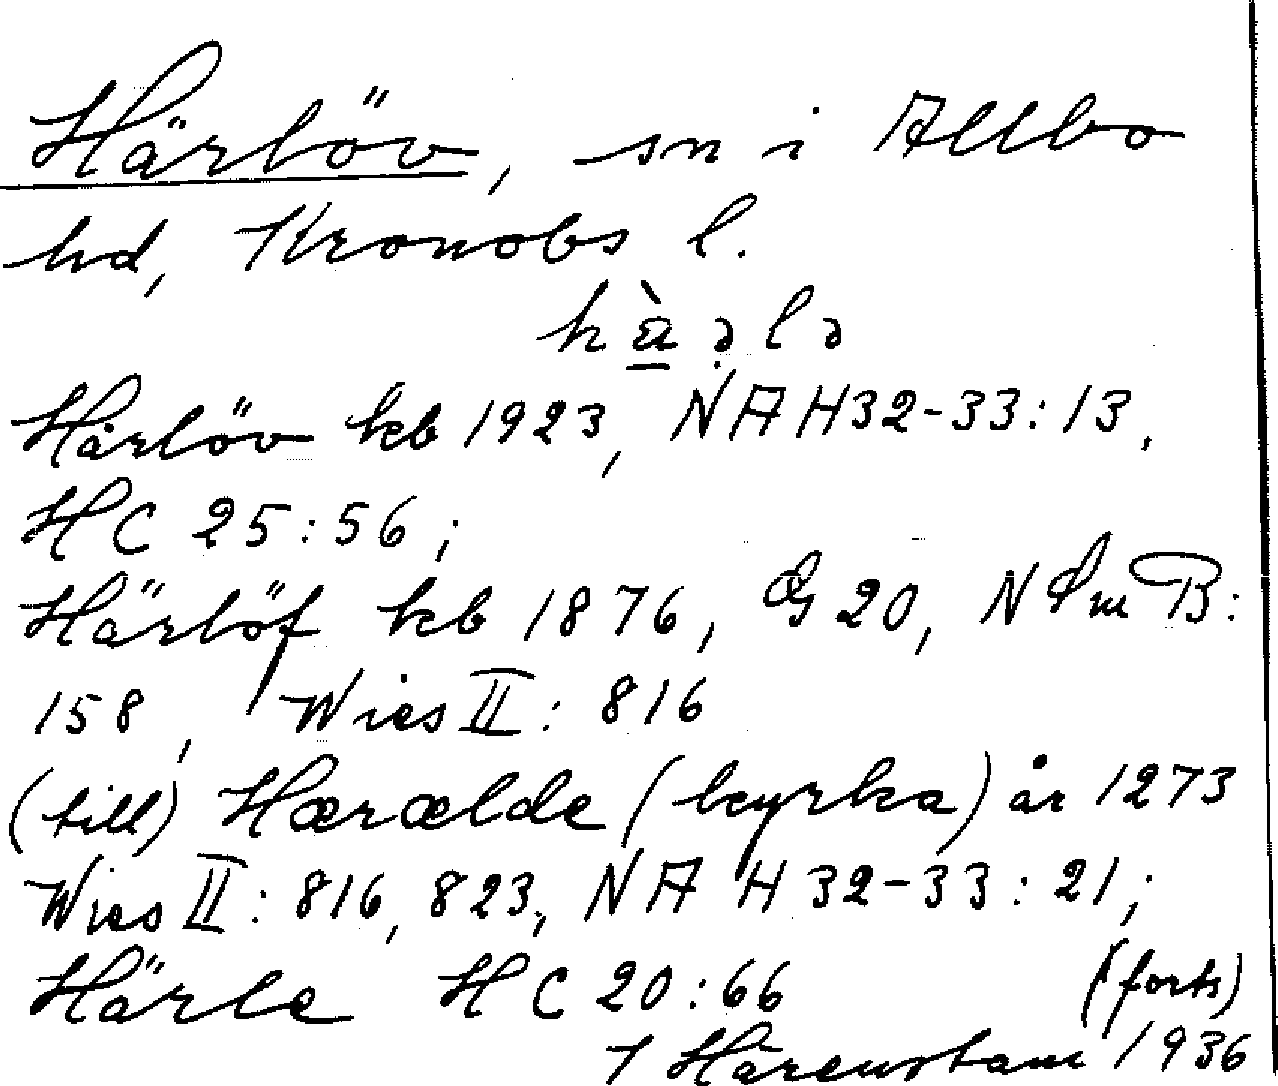 Härlöv, sn i Allbo
hd, Kronobs l.
hàələ
Härlöv kb 1923, NAH32-33:13,
HC 25:56;
Härlöf kb 1876, G 20, NSmB:
158, Wies II: 816
(till) Hæræelde (kyrka) år 1273
Wies II: 816, 823, NA H 32-33:21;
Härle HC 20:66 (forts)
Härenstam 1936